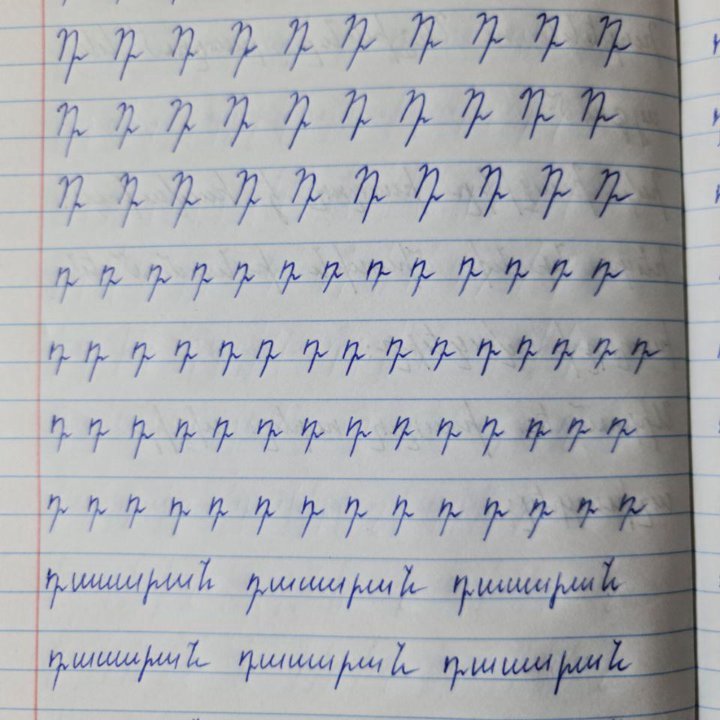 Դ Դ Դ Դ Դ Դ Դ Դ Դ Դ
Դ Դ Դ Դ Դ Դ Դ Դ Դ Դ
Դ Դ Դ Դ Դ Դ Դ Դ Դ Դ
դ դ դ դ դ դ դ դ դ դ դ դ դ
դ դ դ դ դ դ դ դ դ դ դ դ դ դ դ
դ դ դ դ դ դ դ դ դ դ դ դ դ դ
դ դ դ դ դ դ դ դ դ դ դ դ դ դ
դասարան դասարան դասարան
դասարան դասարան դասարան